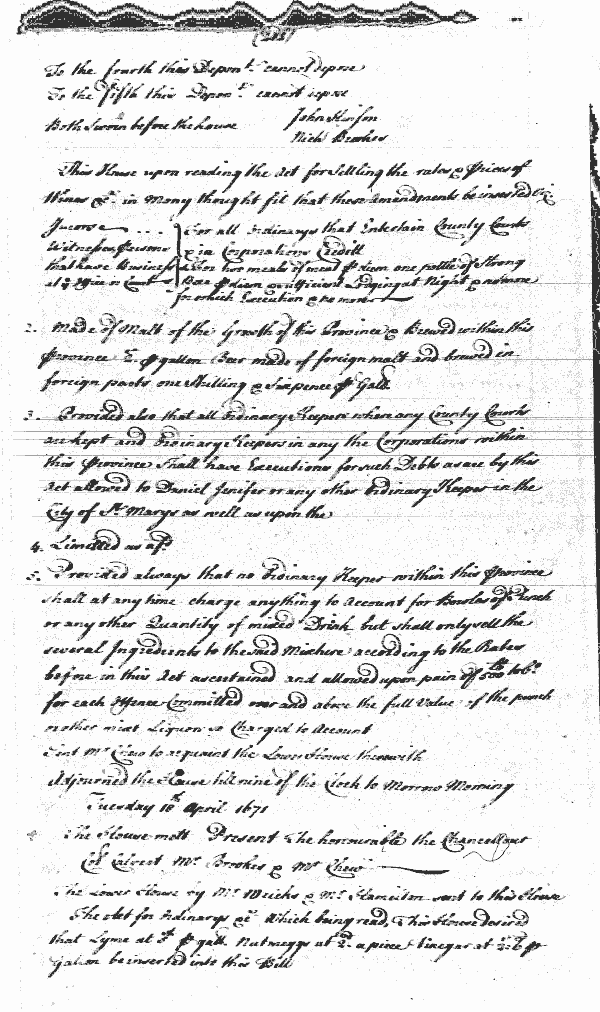 To the fourth this Depont. cannot depose
To the fifth this Depont. cannot depose
Both Sworn before the house John Stinson
Nich Brookes
This House upon reading the Act for Setling the rates & Prices of
Wines &c. in Mony thought fit that these Amendments be inserted
for all Ordinarys that Entertain County Courts
Witnesses, Persons & in Corporations Credill
that have Business For hor meals of meat p diem one pottle of Strong
at ye Office or Court Beer p diem & sufficient Lodging at Night & no more
for which Execution & no more
2. Made of Malt of the Growth of this Province & Brewed within this
Province p gallon Beer made of foreign malt and brewed in
foreign parts one Shilling & Sixpence p Gall
3. Provided also that all Ordinary Keepers when any County Courts
are kept and Ordinary Keepers in any the Corporations within
this Province Shall have Executions for such Debts as are by this
Act allowed to Daniel Jenifer or any other Ordinary Keeper in the
City of St. Marys as well as upon the
4. Limitted as afd
5. Provided always that no Ordinary Keeper within this Province
shall at any time charge any thing to Account for Bowles of Punch
or any other Quantity of mixed Drink but shall only sell the
several Ingredients to the said Mixture according to the Rates
before in this Act ascertained and allowed upon pain of 500 lb tobo.
for each Offence Committed over and above the full Value of the punch
or other mixt Liquor so Charged to Account
Sent Mr Chew to acquaint the Lower House therewith
Adjourned the House till nine of the Clock to Morrow Morning
Tuesday 18th April 1671
The House mett Present The honourable the Chancellour
Col Calvert Mr. Brookes & Mr Chew
The Lower House by Mr Weicks & Mr. Hameston sent to this House
The Act for Ordinarys &c. Which being read, This House desired
that Lyme at p gall. Nutmeggs at 2d. a piece Vinegar at p
Galon be inserted into this Bill